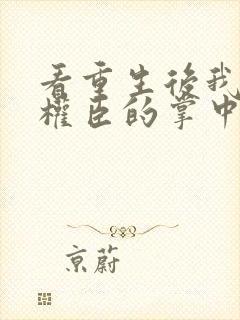 看重生後我
權臣的掌中
京蔚